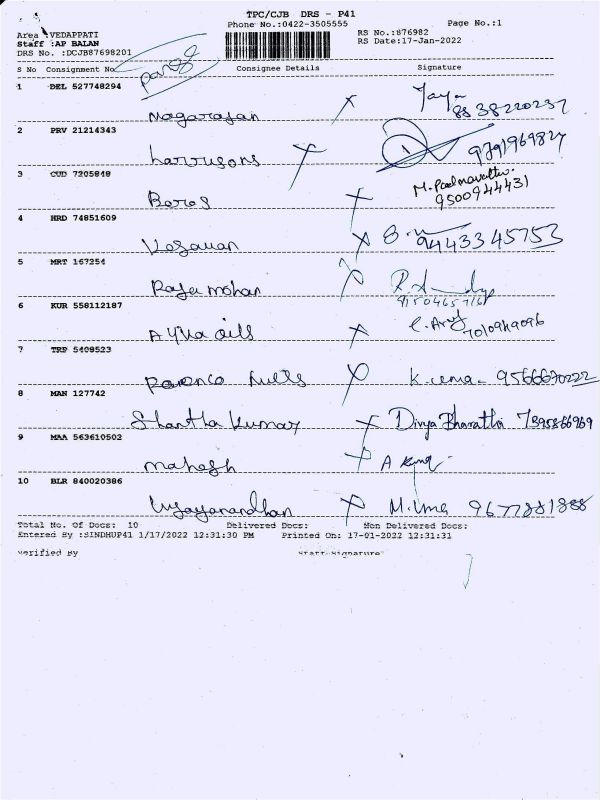 TPC/CJB DRS - P41
Phone No.:0422-3505555 Page No.:1
Area :VEDAPPATI RS No.:876982
Staff :AP BALAN RS Date:17-Jan-2022
DRS No. :DCJB87698201
S No Consignment No Consignee Details Signature
1 DEL 527748294
Nagarajan Jaya 8838220237
2 PRV 21214343
harrisons 9791969827
3 CUD 7205848
Boros M. Padmavathi. 9500944431
4 HRD 74851609
9443345753
5 MRT 167254
Raja mohan
6 KUR 558112187
oils
7 TRP 5408523
K. 9566670222
8 MAN 127742
Shantha Kumar Divya Bharathi 7395866969
9 MAA 563610502
mahesh
10 BLR 840020386
Vijayanandhan M. Uma 9677881888
Total No. Of Docs: 10 Delivered Docs: Non Delivered Docs:
Entered By :SINDHUP41 1/17/2022 12:31:30 PM Printed On: 17-01-2022 12:31:31
Verified By Staff Signature